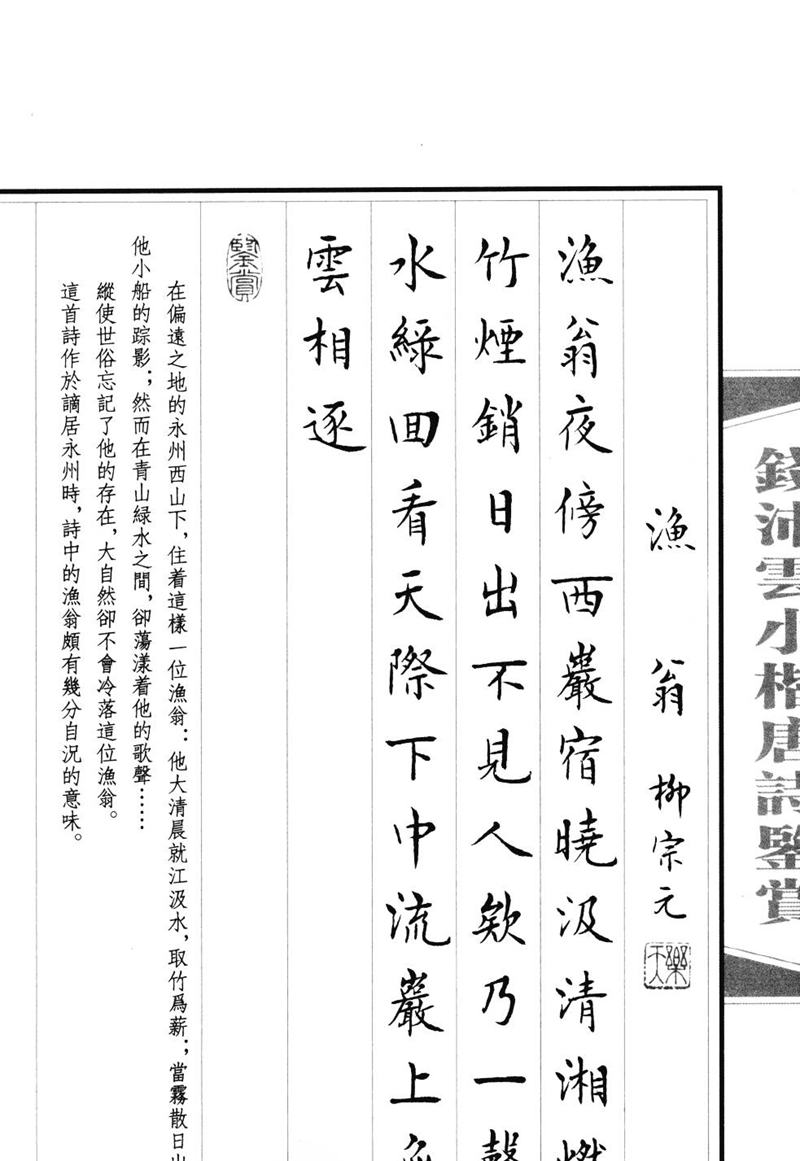 錢沛雲小楷唐詩鑒賞
漁翁 柳宗元
樂天
漁翁夜傍西巖宿曉汲清湘燃
竹煙銷日出不見人欸乃一聲
水綠回看天際下中流巖上無
雲相逐
鑒賏
在偏遠之地的永州西山下，住着這樣一位漁翁：他大清晨就江汲水，取竹爲薪；當霧散日出
他小船的踪影；然而在青山綠水之間，卻蕩漾着他的歌聲……
縱使世俗忘記了他的存在，大自然卻不會冷落這位漁翁。
這首詩作於謫居永州時，詩中的漁翁頗有幾分自況的意味。